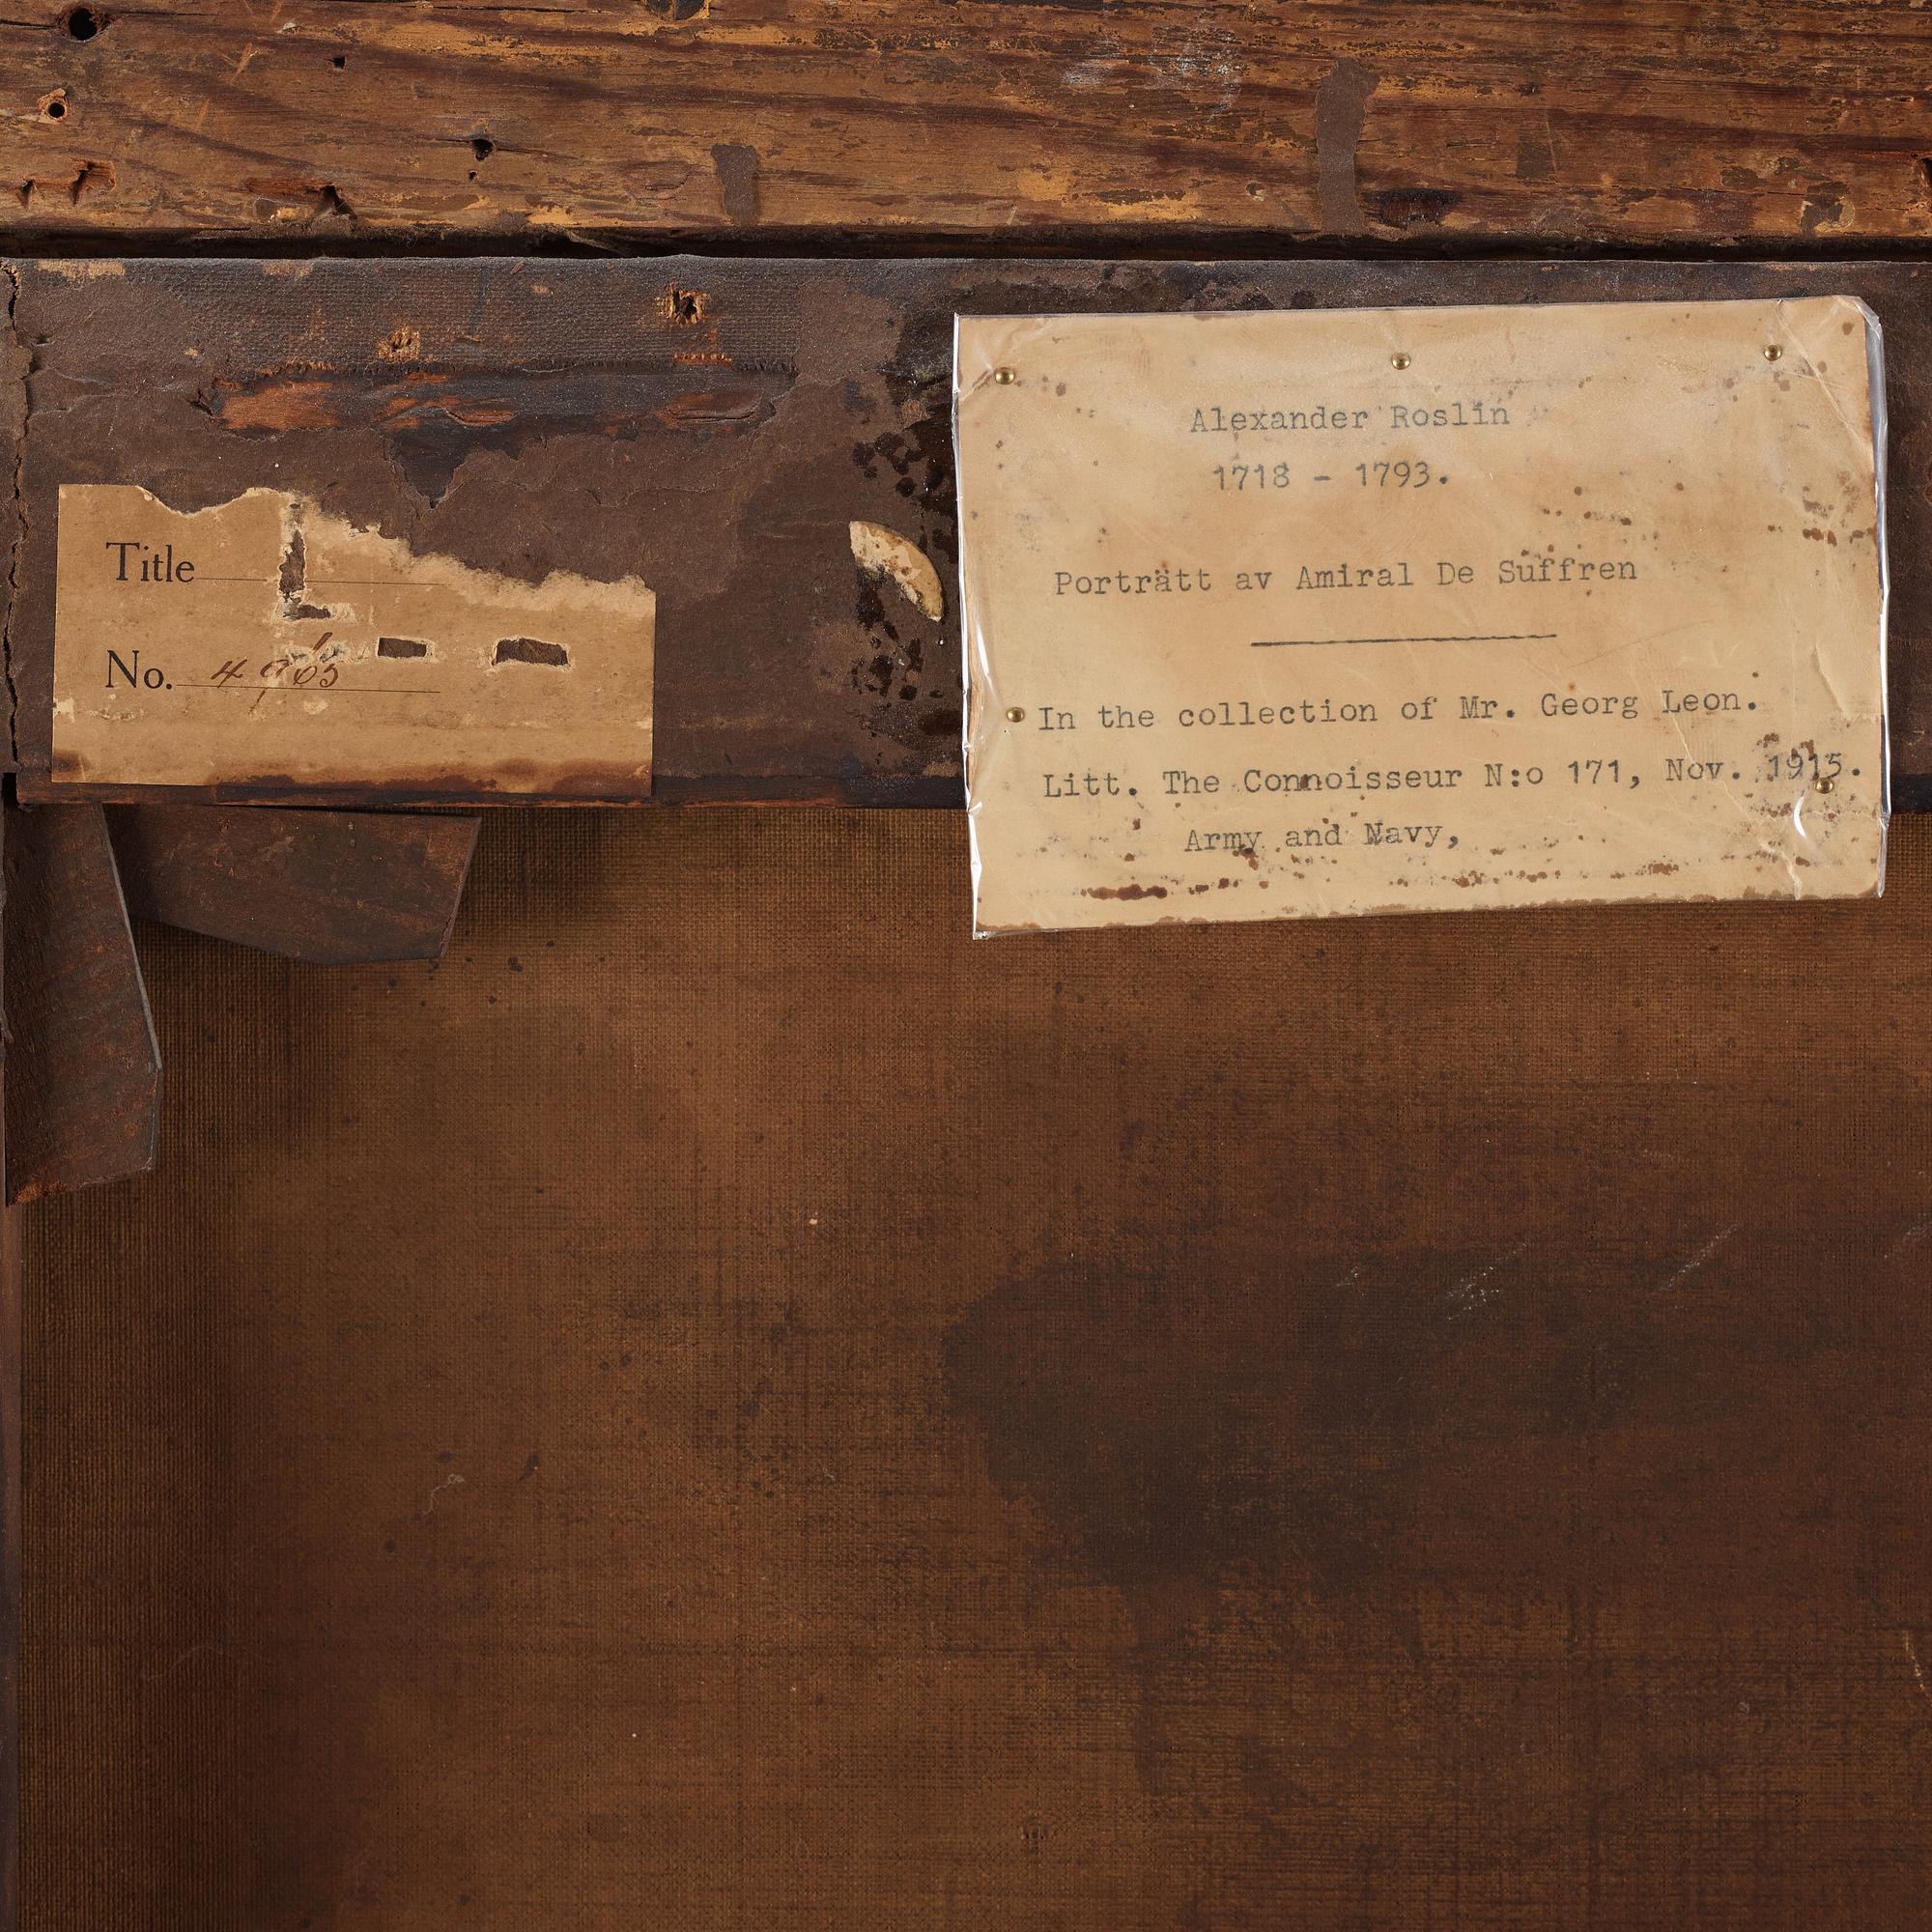 Title
No. 4965
Alexander Roslin
1718 - 1793.
Porträtt av Amiral De Suffren
In the collection of Mr. Georg Leon.
Litt. The Connoisseur N:o 171, Nov. 1915.
Army and Navy,